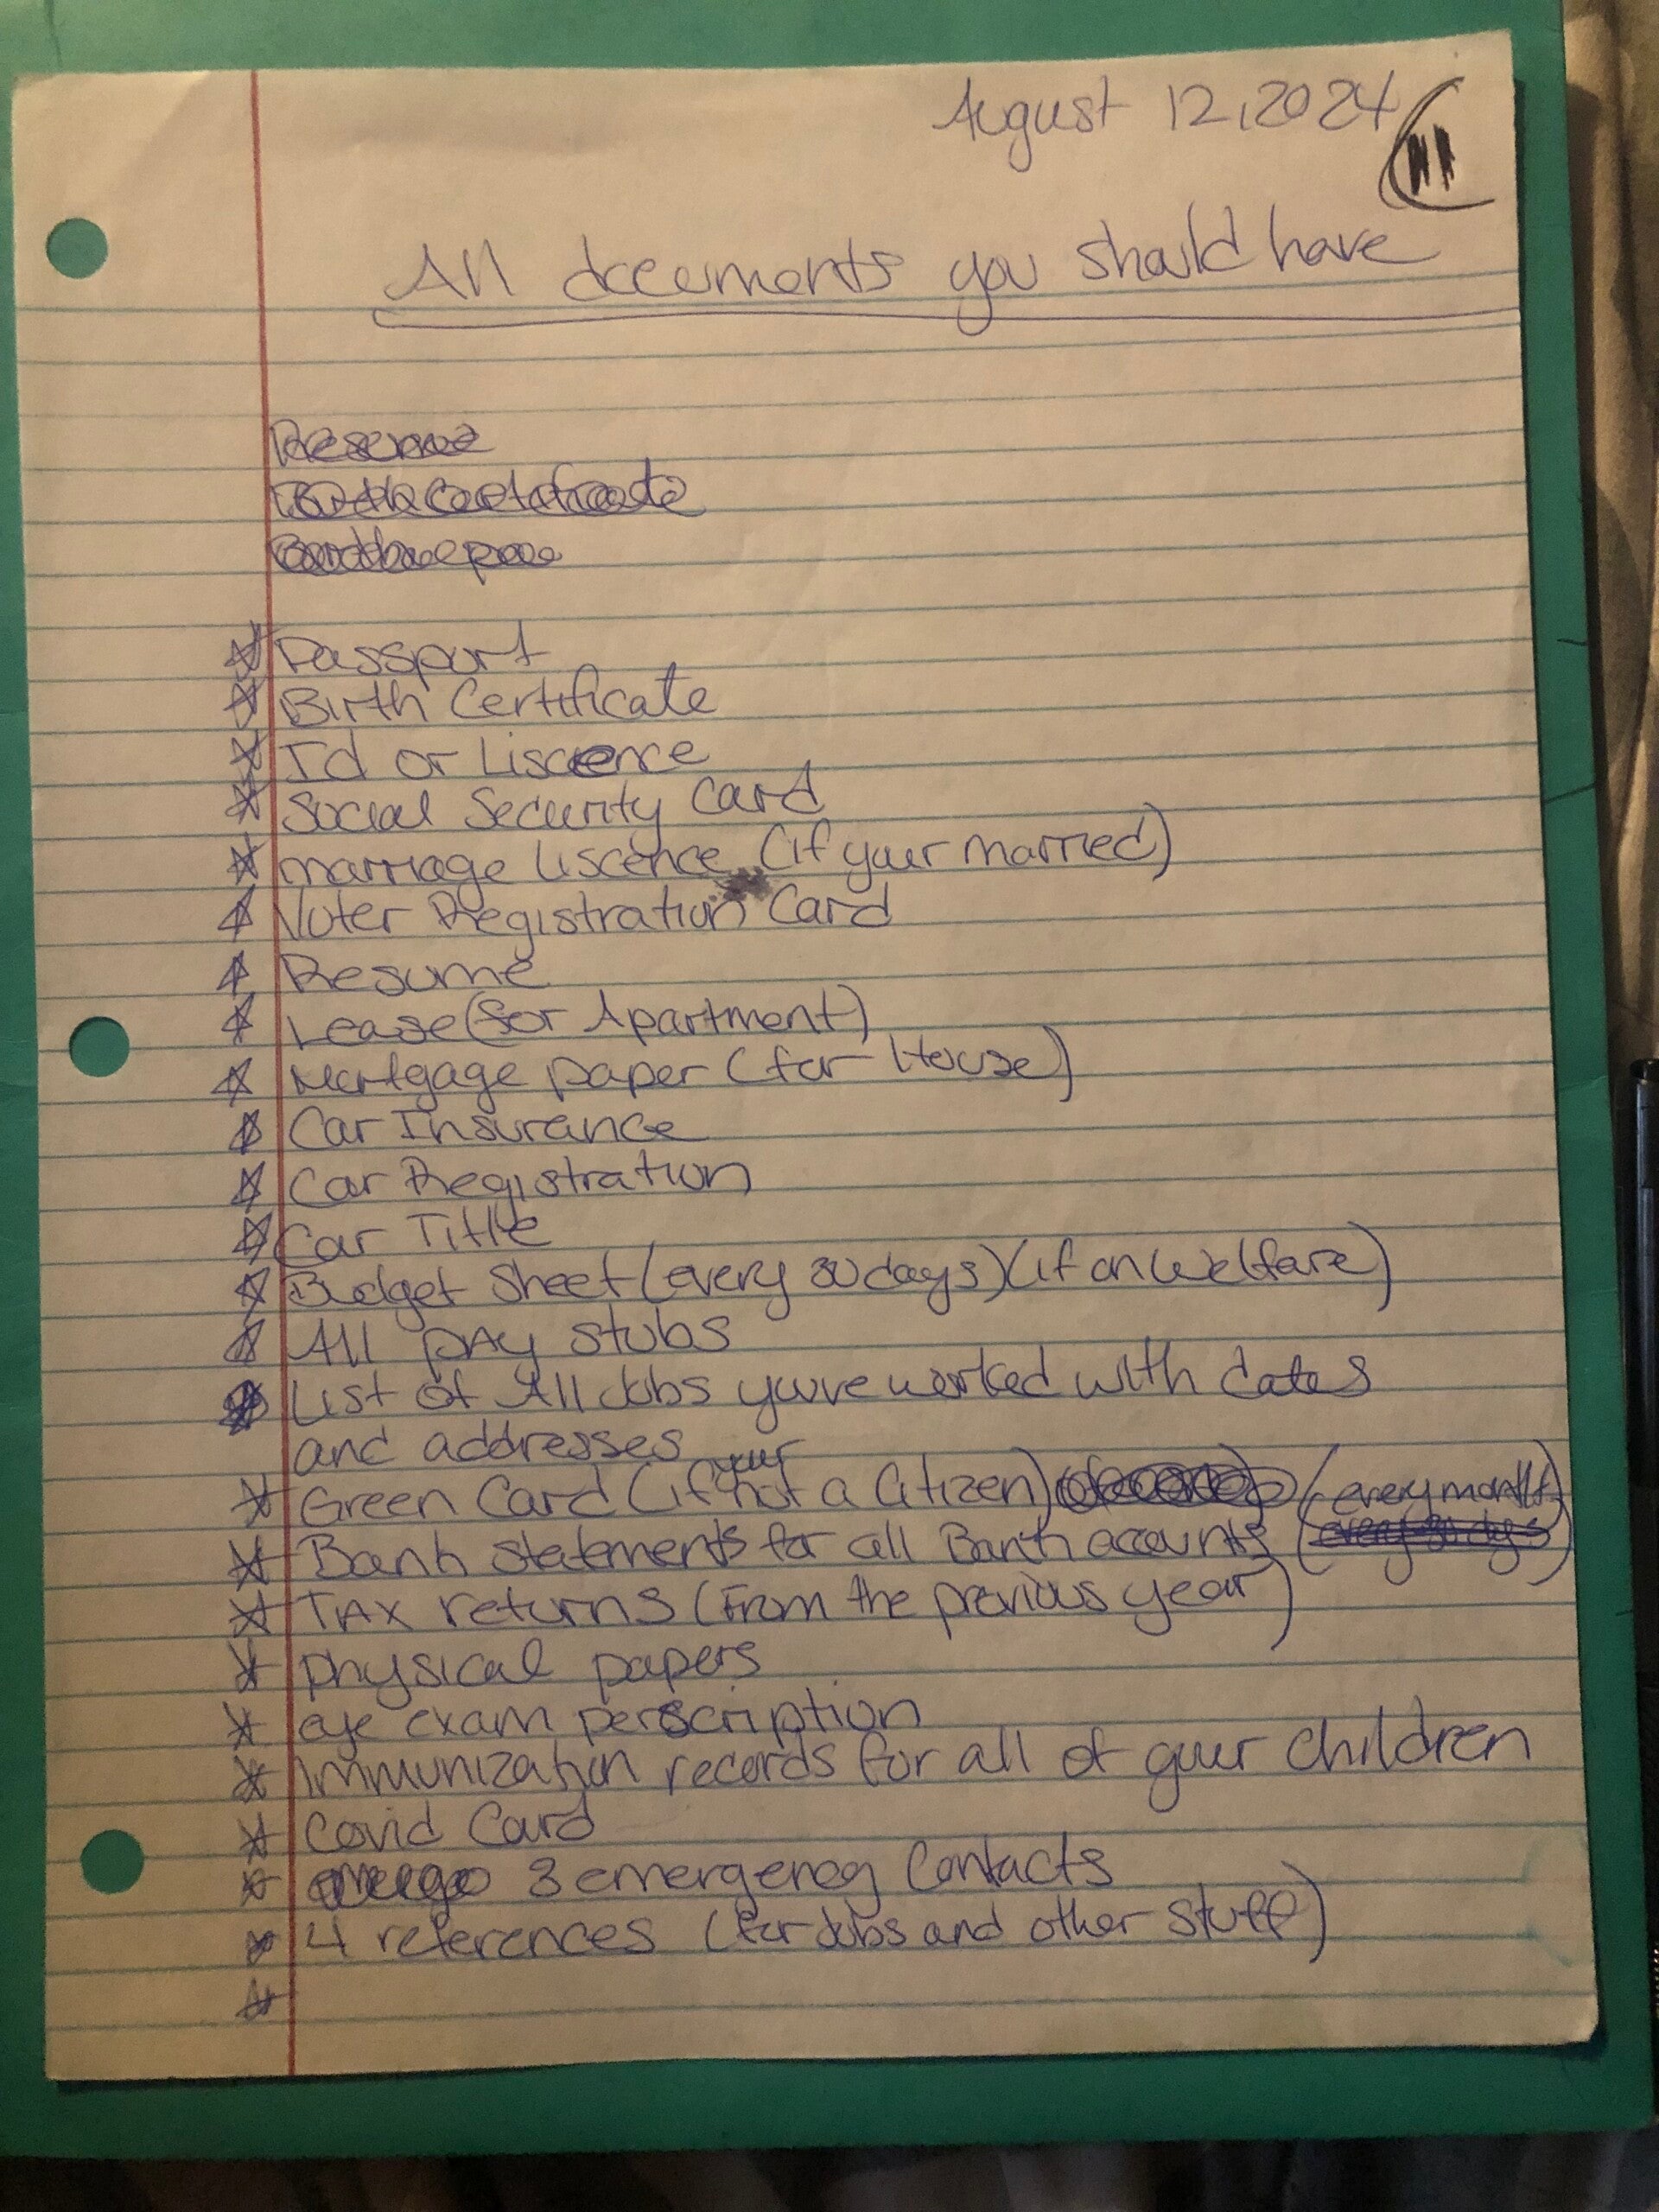 August 12, 2024
All documents you should have
Resume
Birth Certificate
* Passport
* Birth Certificate
* Id or Liscence
* Social Security Card
* marriage liscence (if your married)
* Voter Registration Card
* Resume
* Lease (for Apartment)
* Mortgage paper (for House)
* Car Insurance
* Car Registration
* Car Title
* Budget Sheet (every 30 days) (if on Welfare)
* All pAy stubs
* List of All Jobs youve worked with dates
and addresses
* Green Card (if your not a Citizen) (every month)
* Bank statements for all Bank accounts (every 30 dys)
* TAX returns (From the previous year)
* physical papers
* eye exam perscription
* Immunization records for all of your Children
* Covid Card
* 3 emergency Contacts
* 4 references (for Jobs and other stuff)
*